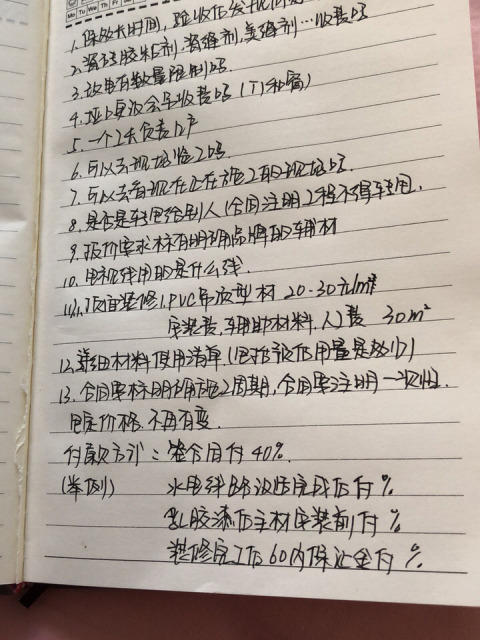 Mo Tu We Th Fr
1.保效长时间,验收后发现
2.瓷砖胶粘剂,瓷缝剂,美缝剂…收费吗
3.放电有数量限制吗
4.垃圾会单收费吗(门和窗)
5.一个工长负责几户
6.可以去现场监工吗
7.可以去看现在正在施工的现场吗
8.是否是转包给别人(合同注明工程不得转包.
9.报价要求标有明确品牌的辅材
10.电视线用的是什么线
11.顶面装修1.PVC吊顶型材 20-30元/m²
安装费,辅助材料,人)费 30m²
12.详细材料使用清单.(包括预估用量是多少)
13.合同要标明确施工周期,合同要注明一次性
包定价格.不再有变
付款方式:签合同付40%.
(举例) 水电线路改造完成后付 %
乳胶漆后主材安装前付 %
装修完工后60内保证金付 %